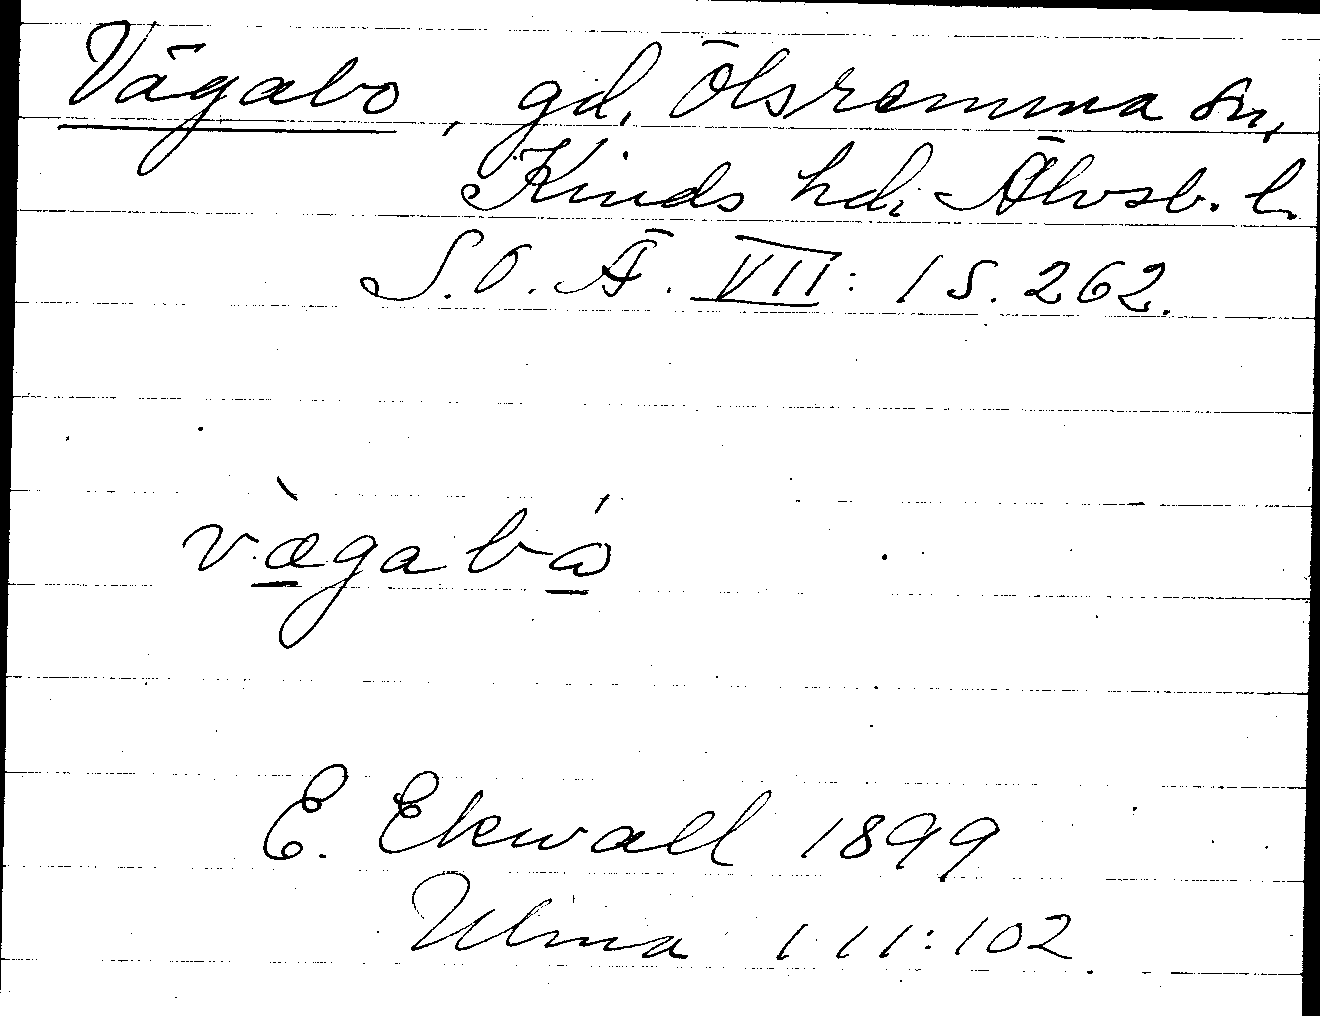 Vägabo, gd, Ölsremma sn,
Kinds hd, Älvsb. l.
S.O.Ä. VII: 1 s. 262.
væ̀gabó
E. Ekwall 1899
Ulma 111:102